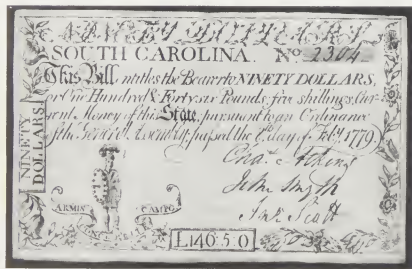 SOUTH CAROLINA. No 2304
This Bill entitles the Bearer to NINETY DOLLARS,
or One Hundred & Forty six Pounds, five shillings, Cur-
rent Money of this State, pursuant to an Ordinance
of the General Assembly, passed the 8th day of Feby. 1779.
John Smyth
Scott
NINETY
DOLLARS
ARMIS
L146:5:0